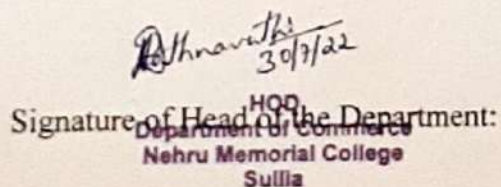 Rathnavathi
30/7/22
HOD
Signature of Head of the Department:
Department of Commerce
Nehru Memorial College
Sullia